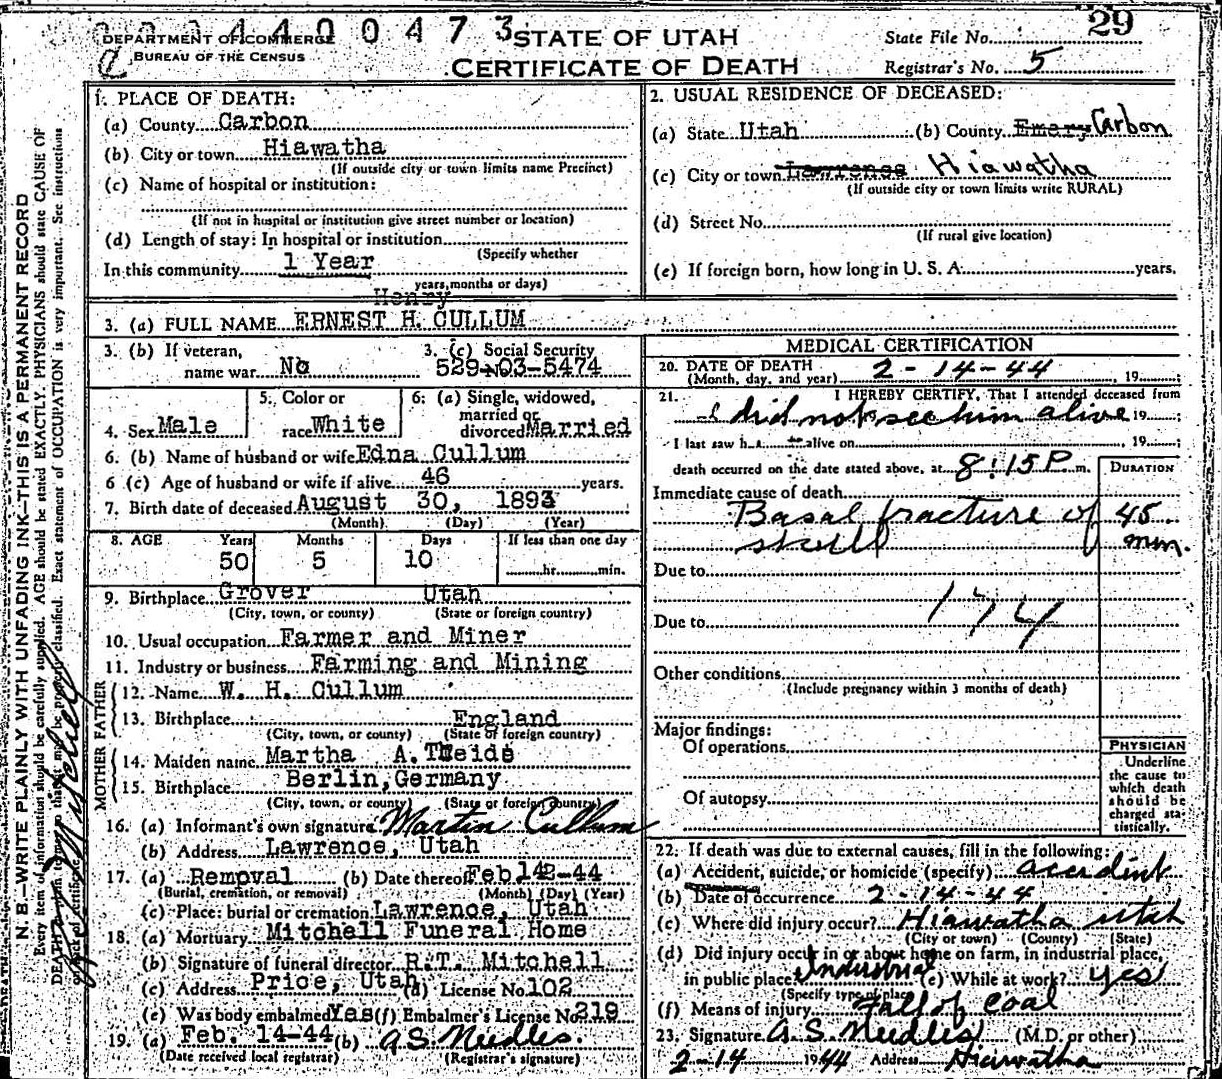 4 4 0 0 4 7 3
29
DEPARTMENT OF COMMERCE
BUREAU OF THE CENSUS
STATE OF UTAH
CERTIFICATE OF DEATH
State File No.
Registrar's No. 5
N. B.—WRITE PLAINLY WITH UNFADING INK—THIS IS A PERMANENT RECORD
Every item of information should be carefully supplied. AGE should be stated EXACTLY. PHYSICIANS should state CAUSE OF
DEATH in plain terms so that it may be properly classified. Exact statement of OCCUPATION is very important. See instructions
back of certificate.
1. PLACE OF DEATH:
(a) County Carbon
(b) City or town Hiawatha
(If outside city or town limits name Precinct)
(c) Name of hospital or institution:
(If not in hospital or institution give street number or location)
(d) Length of stay: In hospital or institution
(Specify whether
In this community 1 Year
years, months or days)
2. USUAL RESIDENCE OF DECEASED:
(a) State Utah (b) County Emery Carbon
(c) City or town Lawrence Hiawatha
(If outside city or town limits write RURAL)
(d) Street No.
(If rural give location)
(e) If foreign born, how long in U. S. A. years.
Henry
3. (a) FULL NAME ERNEST H. CULLUM
3. (b) If veteran,
name war No
3. (c) Social Security
No 529-03-5474
4. Sex Male
5. Color or
race White
6. (a) Single, widowed,
married or
divorced Married
6. (b) Name of husband or wife Edna Cullum
6 (c) Age of husband or wife if alive 46 years.
7. Birth date of deceased August 30, 1893
(Month) (Day) (Year)
8. AGE Years Months Days If less than one day
50 5 10 hr. min.
9. Birthplace Grover Utah
(City, town, or county) (State or foreign country)
10. Usual occupation Farmer and Miner
11. Industry or business Farming and Mining
FATHER
12. Name W. H. Cullum
13. Birthplace England
(City, town, or county) (State or foreign country)
MOTHER
14. Maiden name Martha A. Theide
15. Birthplace Berlin, Germany
(City, town, or county) (State or foreign country)
16. (a) Informant's own signature Martin Cullum
(b) Address Lawrence, Utah
17. (a) Removal (b) Date thereof Feb 142-44
(Burial, cremation, or removal) (Month) (Day) (Year)
(c) Place: burial or cremation Lawrence, Utah
18. (a) Mortuary Mitchell Funeral Home
(b) Signature of funeral director R.T. Mitchell
(c) Address Price, Utah (d) License No. 102
(e) Was body embalmed Yes (f) Embalmer's License No. 219
19. (a) Feb. 14-44 (b) A.S. Needles.
(Date received local registrar) (Registrar's signature)
MEDICAL CERTIFICATION
20. DATE OF DEATH
(Month, day, and year) 2-14-44, 19
21. I HEREBY CERTIFY, That I attended deceased from
I did not see him alive 19
I last saw h alive on , 19
death occurred on the date stated above, at 8:15 P m.
DURATION
Immediate cause of death
Basal fracture of 45
skull min.
Due to
Due to 174
Other conditions
(Include pregnancy within 3 months of death)
Major findings:
Of operations
Of autopsy
PHYSICIAN
Underline
the cause to
which death
should be
charged sta-
tistically.
22. If death was due to external causes, fill in the following:
(a) Accident, suicide, or homicide (specify) accident
(b) Date of occurrence 2-14-44
(c) Where did injury occur? Hiawatha Utah
(City or town) (County) (State)
(d) Did injury occur in or about home on farm, in industrial place,
in public place Industrial (e) While at work? yes
(Specify type of place)
(f) Means of injury Fall of coal
23. Signature A.S. Needles (M.D. or other)
2-14 1944 Address Hiawatha